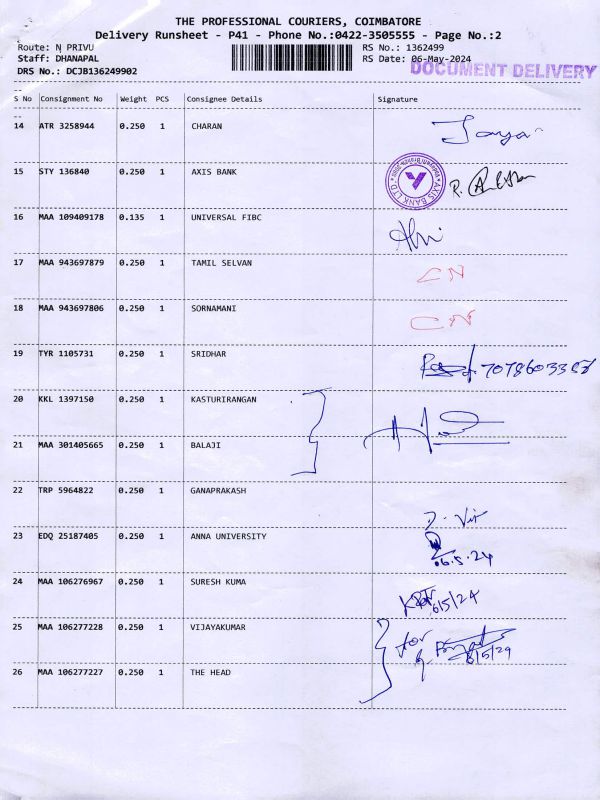 THE PROFESSIONAL COURIERS, COIMBATORE
Delivery Runsheet - P41 - Phone No.:0422-3505555 - Page No.:2
Route: N PRIVU RS No.: 1362499
Staff: DHANAPAL RS Date: 06-May-2024
DRS No.: DCJB136249902 DOCUMENT DELIVERY
S No Consignment No Weight PCS Consignee Details Signature
14 ATR 3258944 0.250 1 CHARAN Jaya
15 STY 136840 0.250 1 AXIS BANK AXIS BANK LTD R.
16 MAA 109409178 0.135 1 UNIVERSAL FIBC
17 MAA 943697879 0.250 1 TAMIL SELVAN CN
18 MAA 943697806 0.250 1 SORNAMANI CN
19 TYR 1105731 0.250 1 SRIDHAR
20 KKL 1397150 0.250 1 KASTURIRANGAN
21 MAA 301405665 0.250 1 BALAJI
22 TRP 5964822 0.250 1 GANAPRAKASH
23 EDQ 25187405 0.250 1 ANNA UNIVERSITY 06.5.24
24 MAA 106276967 0.250 1 SURESH KUMA 6/5/24
25 MAA 106277228 0.250 1 VIJAYAKUMAR for 6/5/24
26 MAA 106277227 0.250 1 THE HEAD